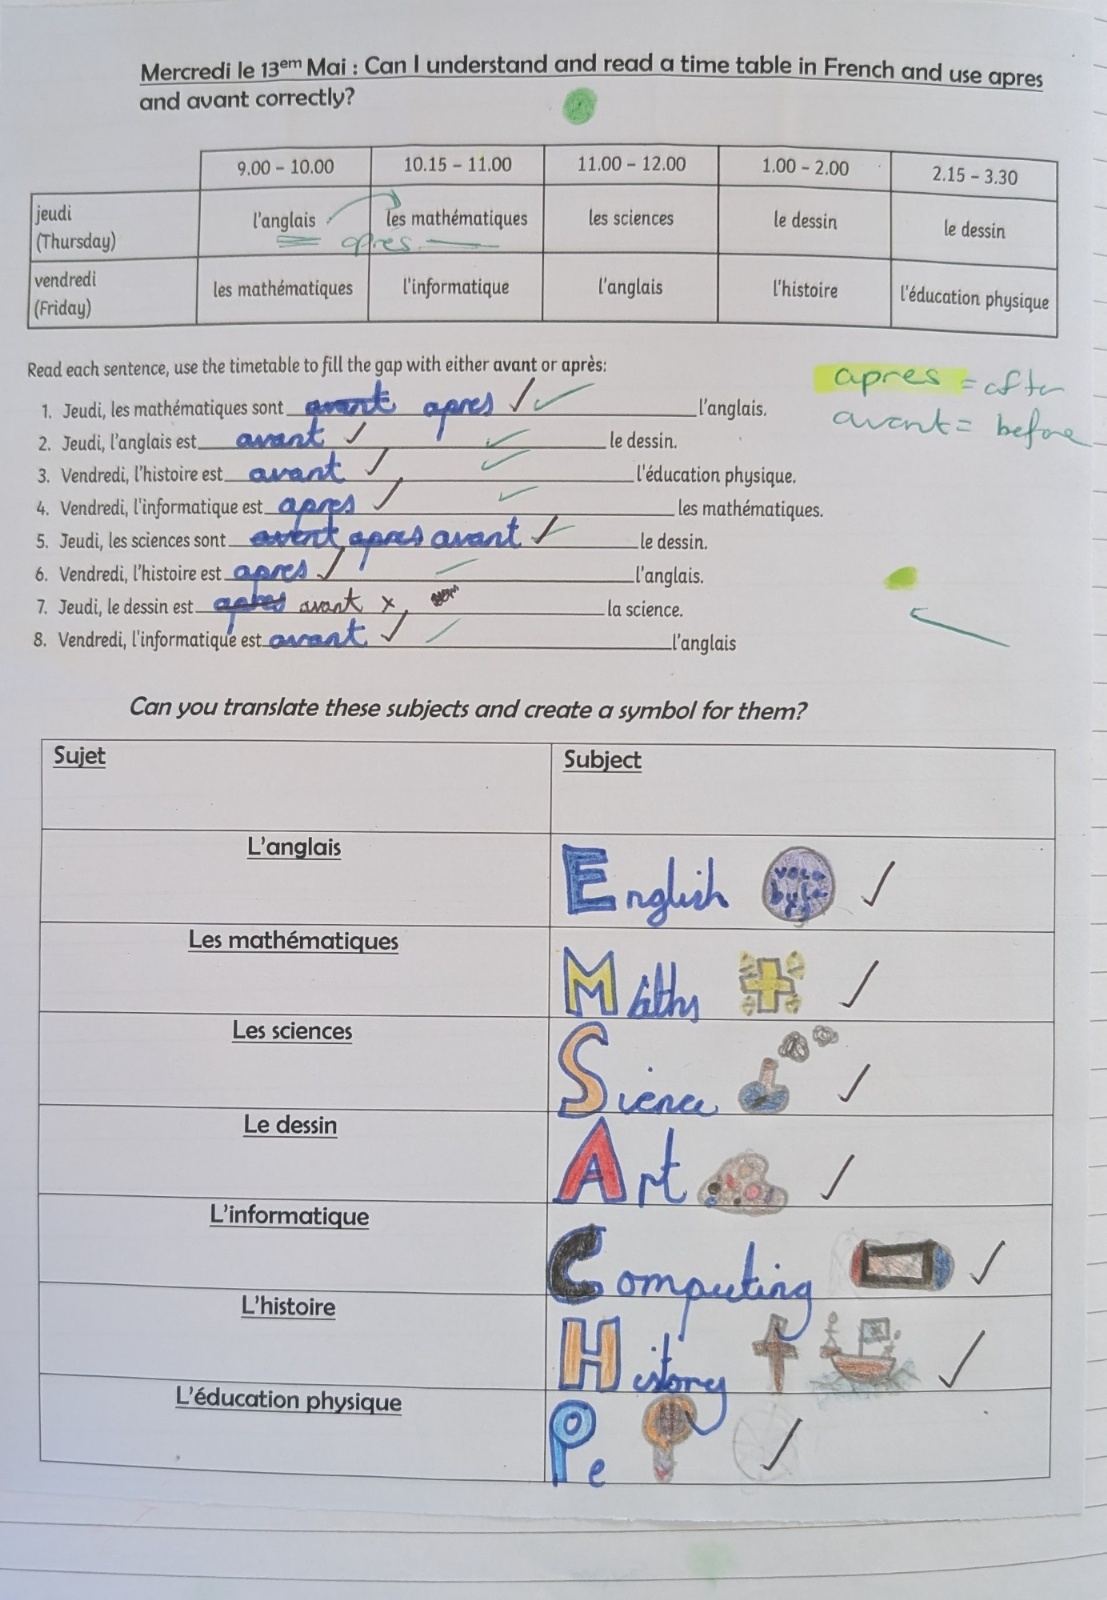 Mercredi le 13em Mai : Can I understand and read a time table in French and use apres
and avant correctly?
9.00 – 10.00 10.15 – 11.00 11.00 – 12.00 1.00 – 2.00 2.15 – 3.30
jeudi
(Thursday) l'anglais les mathématiques les sciences le dessin le dessin
apres
vendredi
(Friday) les mathématiques l'informatique l'anglais l'histoire l'éducation physique
Read each sentence, use the timetable to fill the gap with either avant or après:
apres = after
avant = before
1. Jeudi, les mathématiques sont avant apres l'anglais.
2. Jeudi, l'anglais est avant le dessin.
3. Vendredi, l'histoire est avant l'éducation physique.
4. Vendredi, l'informatique est apres les mathématiques.
5. Jeudi, les sciences sont avant apres avant le dessin.
6. Vendredi, l'histoire est apres l'anglais.
7. Jeudi, le dessin est apres avant x la science.
8. Vendredi, l'informatique est avant l'anglais
Can you translate these subjects and create a symbol for them?
Sujet Subject
L'anglais English
Les mathématiques Maths
Les sciences Sience
Le dessin Art
L'informatique Computing
L'histoire History
L'éducation physique Pe